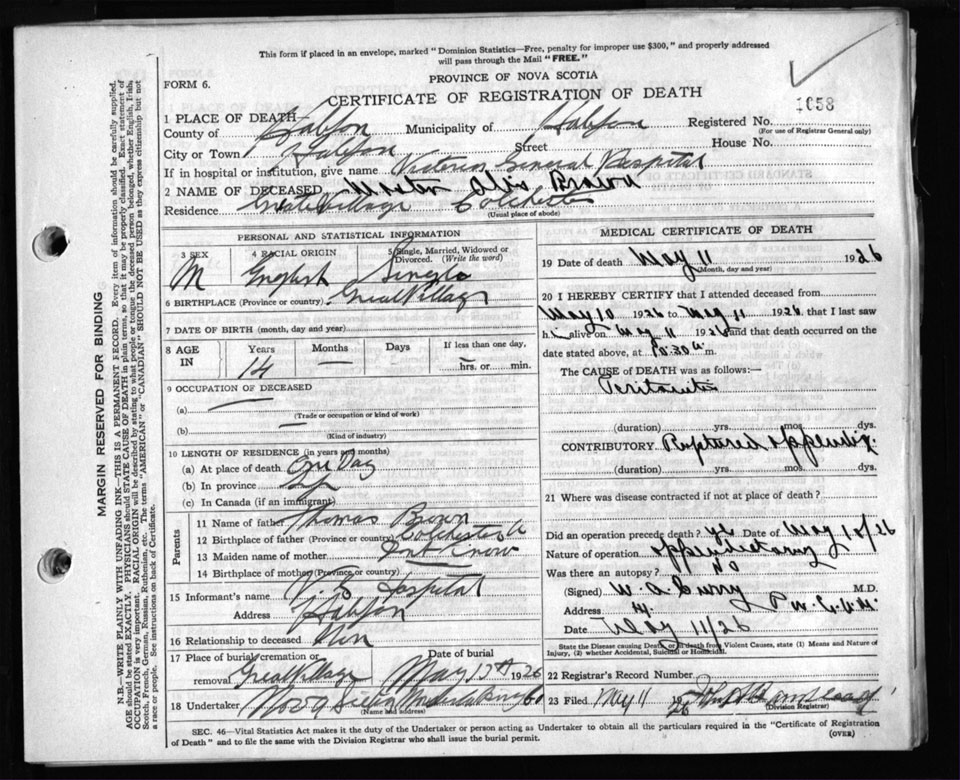 This form if placed in an envelope, marked "Dominion Statistics—Free, penalty for improper use $300," and properly addressed
will pass through the Mail "FREE."
FORM 6.
PROVINCE OF NOVA SCOTIA
CERTIFICATE OF REGISTRATION OF DEATH
1058
1 PLACE OF DEATH—
County of Halifax Municipality of Halifax Registered No.
(For use of Registrar General only)
City or Town Halifax Street House No.
If in hospital or institution, give name Victoria General Hospital
2 NAME OF DECEASED Brown
Residence Great Village Colchester
(Usual place of abode)
PERSONAL AND STATISTICAL INFORMATION
3 SEX 4 RACIAL ORIGIN 5 Single, Married, Widowed or Divorced. (Write the word)
M English Single
6 BIRTHPLACE (Province or country) Great Village
7 DATE OF BIRTH (month, day and year)
8 AGE IN Years Months Days If less than one day,
14 — hrs. or min.
9 OCCUPATION OF DECEASED
(a) —
(Trade or occupation or kind of work)
(b) —
(Kind of industry)
10 LENGTH OF RESIDENCE (in years and months)
(a) At place of death One Day
(b) In province
(c) In Canada (if an immigrant)
Parents
11 Name of father Thomas Brown
12 Birthplace of father (Province or country) Colchester
13 Maiden name of mother Dont Know
14 Birthplace of mother (Province or country)
15 Informant's name V G Hospital
Address Halifax
16 Relationship to deceased
17 Place of burial, cremation or removal Great Village Date of burial May 1926
18 Undertaker
(Name and address)
MEDICAL CERTIFICATE OF DEATH
19 Date of death May 11 1926
(Month, day and year)
20 I HEREBY CERTIFY that I attended deceased from
May 10 1926 to May 11 1926, that I last saw
h alive on May 11 1926 and that death occurred on
date stated above, at 10:30 a.m.
The CAUSE of DEATH was as follows:—
Peritonitis
(duration) yrs. mos. dys.
CONTRIBUTORY Ruptured appendix
(duration) yrs. mos. dys.
21 Where was disease contracted if not at place of death?
Did an operation precede death? yes Date of May 10/26
Nature of operation appendectomy
Was there an autopsy? No
(Signed) W. A. Curry M.D.
Address
Date May 11/26
State the Disease causing Death, or in death from Violent Causes, state (1) Means and Nature of
Injury, (2) whether Accidental, Suicidal or Homicidal.
22 Registrar's Record Number
23 Filed May 11 1926
(Division Registrar)
SEC. 46—Vital Statistics Act makes it the duty of the Undertaker or person acting as Undertaker to obtain all the particulars required in the "Certificate of Registration
of Death" and to file the same with the Division Registrar who shall issue the burial permit.
(OVER)
MARGIN RESERVED FOR BINDING
N.B.—WRITE PLAINLY WITH UNFADING INK—THIS IS A PERMANENT RECORD. Every item of information should be carefully supplied.
AGE should be stated EXACTLY. PHYSICIANS should STATE CAUSE OF DEATH in plain terms, so that it may be properly classified. Exact statement of
OCCUPATION is very important. RACIAL ORIGIN will be described by stating to what people or tongue the deceased person belonged, whether English, Irish,
Scotch, French, German, Russian, Ruthenian, etc. The terms "AMERICAN" or "CANADIAN" SHOULD NOT BE USED as they express citizenship but not
a race or people. See instructions on back of Certificate.